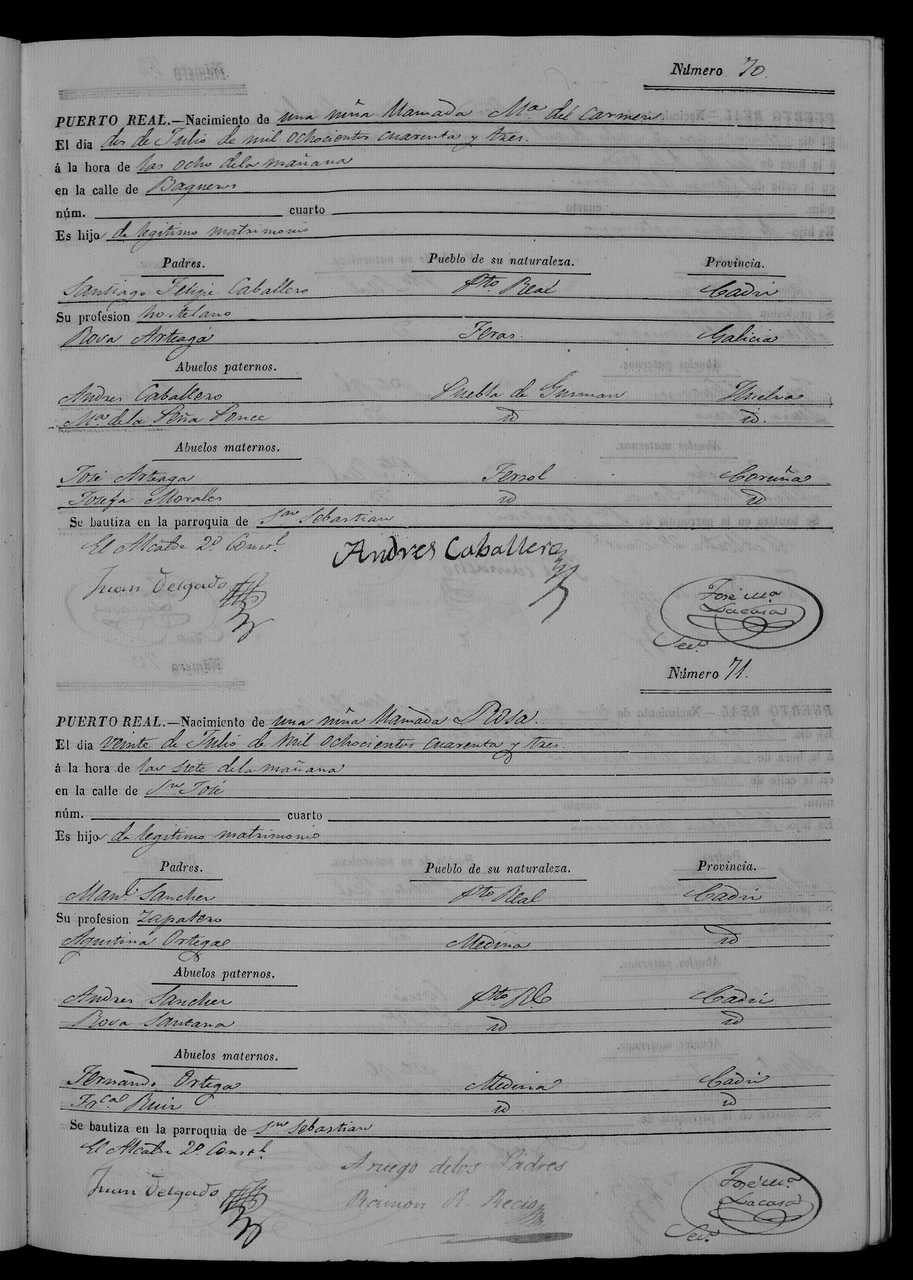 Número 70.
PUERTO REAL.—Nacimiento de una niña llamada Ma. del Carmen.
El dia dos de Julio de mil ochocientos cuarenta y tres.
á la hora de las ocho de la mañana
en la calle de
núm. cuarto
Es hijo de legitimo matrimonio
Padres. Pueblo de su naturaleza. Provincia.
Santiago Felipe Caballero Pto. Real Cadiz
Su profesion hortelano
Rosa Arteaga Galicia
Abuelos paternos.
Andres Caballero Puebla de Gusman Huelva
Ma. de la Peña Ponce id id.
Abuelos maternos.
José Arteaga Ferrol Coruña
Josefa Morales id id
Se bautiza en la parroquia de San Sebastian
El Alcalde 2º Constl.
Andres Caballero
Juan Delgado
José Ma.
Lacasa
Seco.
Número 71.
PUERTO REAL.—Nacimiento de una niña llamada Rosa.
El dia veinte de Julio de mil ochocientos cuarenta y tres
á la hora de las siete de la mañana
en la calle de Sn José
núm. cuarto
Es hijo de legitimo matrimonio
Padres. Pueblo de su naturaleza. Provincia.
Manl. Sanchez Pto Real Cadiz
Su profesion Zapatero
Agustina Ortega Medina id
Abuelos paternos.
Andres Sanchez Pto Rl Cadiz
Rosa Santana id id
Abuelos maternos.
Fernando Ortega Medina Cadiz
Frca Ruiz id id
Se bautiza en la parroquia de Sn Sebastian
El Alcalde 2º Constl.
A ruego de los Padres
Juan Delgado
Ramon R. Recio
José Ma.
Lacasa
Seco.